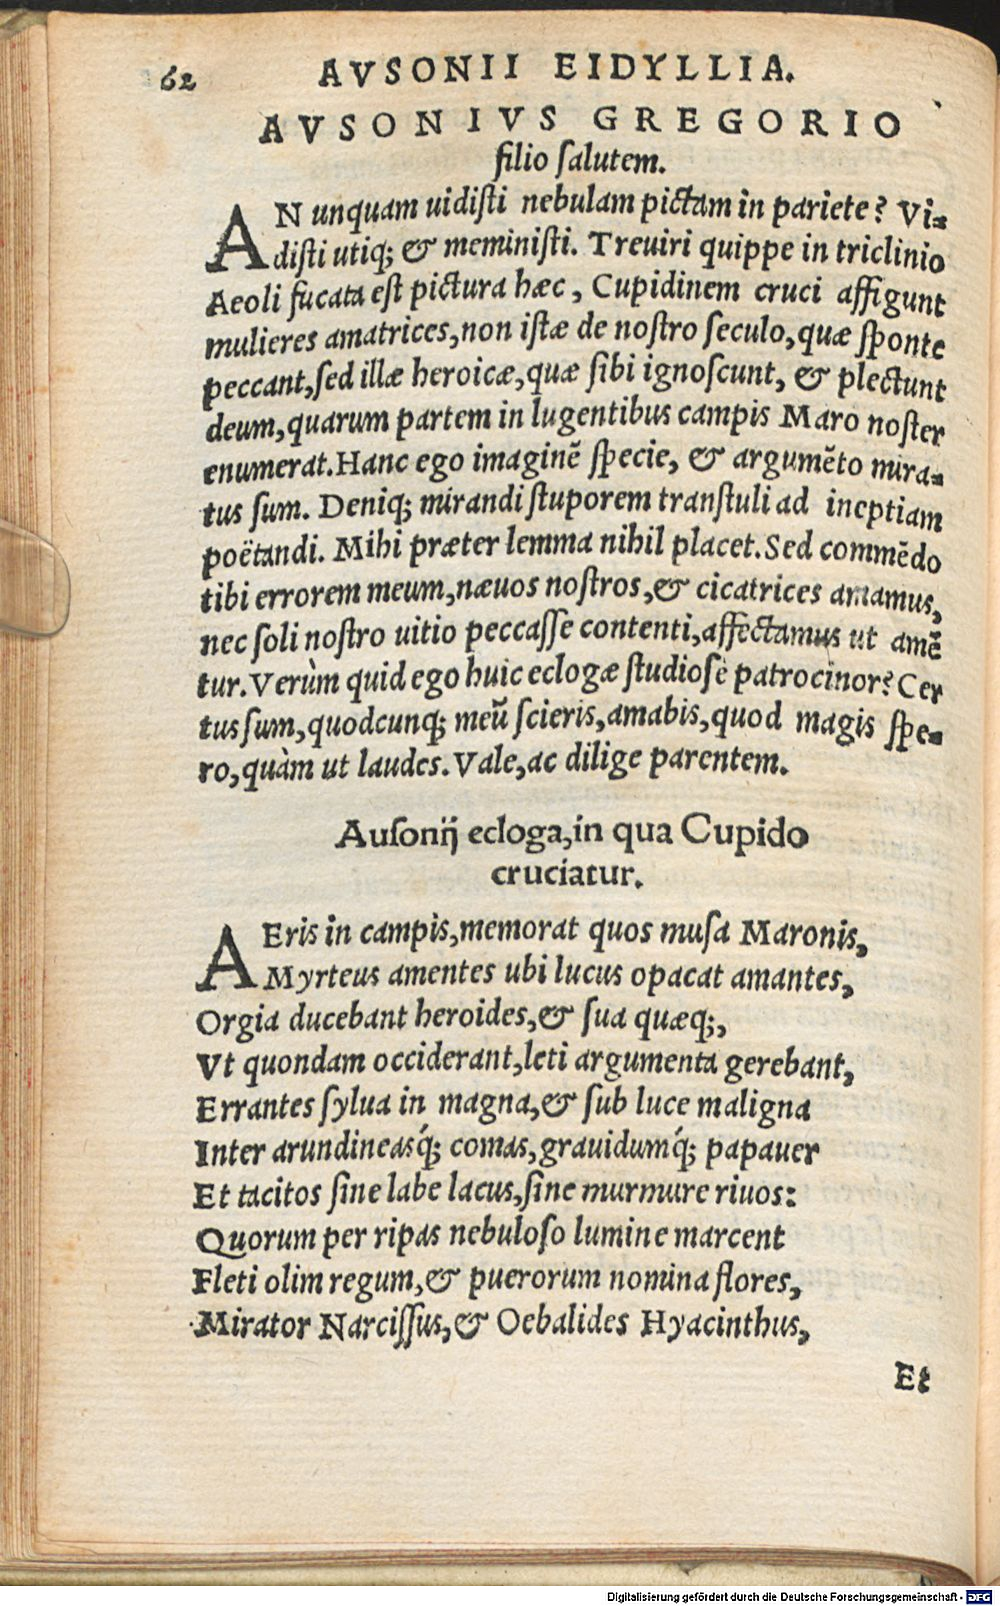 62
AVSONII EIDYLLIA.
AVSONIVS GREGORIO
filio ſalutem.
AN unquam uidiſti nebulam pictam in pariete? Vi-
diſti utiq; & meminiſti. Treuiri quippe in triclinio
Aeoli fucata eſt pictura hæc, Cupidinem cruci affigunt
mulieres amatrices, non iſtæ de noſtro ſeculo, quæ ſponte
peccant, ſed illæ heroicæ, quæ ſibi ignoſcunt, & plectunt
deum, quarum partem in lugentibus campis Maro noſter
enumerat. Hanc ego imaginē ſpecie, & argumēto mira-
tus ſum. Deniq; mirandi ſtuporem tranſtuli ad ineptiam
poëtandi. Mihi præter lemma nihil placet. Sed commēdo
tibi errorem meum, næuos noſtros, & cicatrices amamus,
nec ſoli noſtro uitio peccaſſe contenti, affectamus ut amē
tur. Verùm quid ego huic eclogæ ſtudioſè patrocinor? Cer
tus ſum, quodcunq; meū ſcieris, amabis, quod magis ſpe-
ro, quàm ut laudes. Vale, ac dilige parentem.
Auſonij ecloga, in qua Cupido
cruciatur.
AEris in campis, memorat quos muſa Maronis,
Myrteus amentes ubi lucus opacat amantes,
Orgia ducebant heroides, & ſua quæq;,
Vt quondam occiderant, leti argumenta gerebant,
Errantes ſylua in magna, & ſub luce maligna
Inter arundineasq́; comas, grauidumq́; papauer
Et tacitos ſine labe lacus, ſine murmure riuos:
Quorum per ripas nebuloſo lumine marcent
Fleti olim regum, & puerorum nomina flores,
Mirator Narciſſus, & Oebalides Hyacinthus,
Et
Digitalisierung gefördert durch die Deutsche Forschungsgemeinschaft - DFG